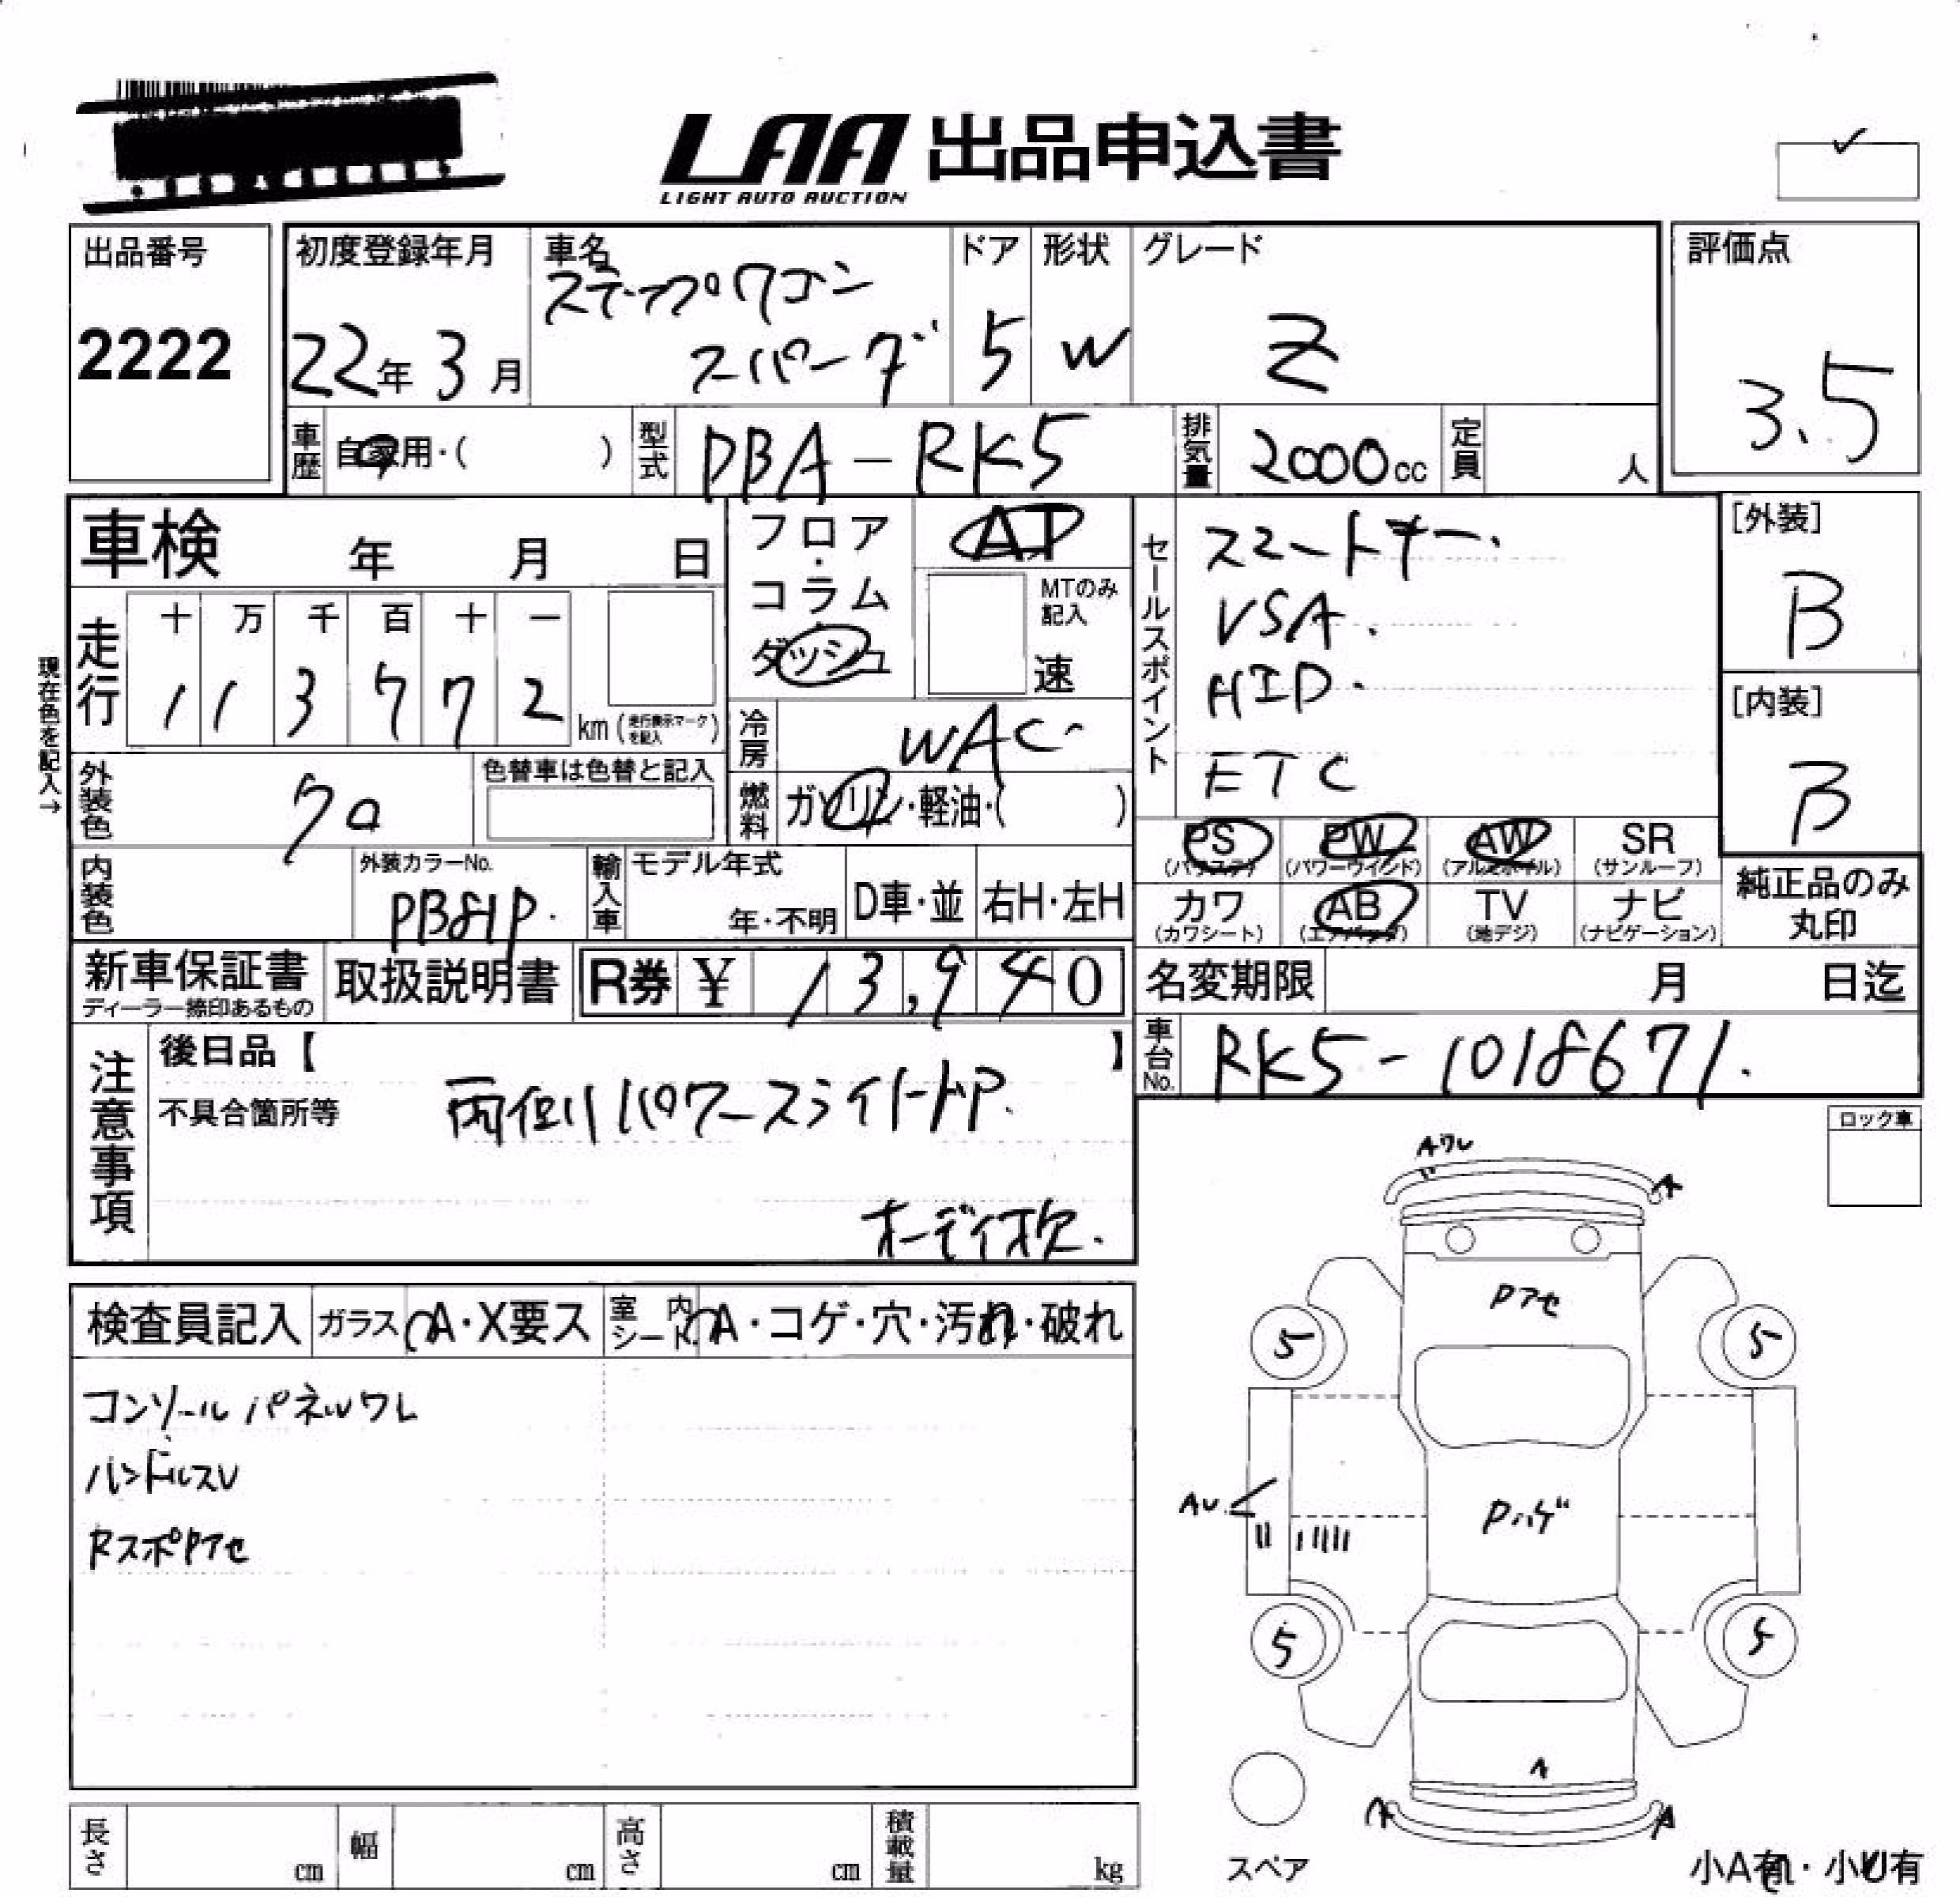 LAA 出品申込書
LIGHT AUTO AUCTION
出品番号
2222
初度登録年月
22年 3月
車名
ステップワゴン
スパーダ
ドア
5
形状
W
グレード
Z
評価点
3.5
車歴 自家用・( )
型式 DBA-RK5
排気量 2000cc
定員 人
車検 年 月 日
フロア・コラム・ダッシュ
AT
MTのみ記入
速
セールスポイント
スマートキー.
VSA.
HID.
ETC
[外装]
B
[内装]
B
現在色を記入→
走行
十 万 千 百 十 一
1 1 3 7 7 2
km (走行表示マークを記入)
冷房 WAC
燃料 ガソリン・軽油・( )
外装色 クロ
色替車は色替と記入
PS (パワステ)
PW (パワーウインド)
AW (アルミホイル)
SR (サンルーフ)
カワ (カワシート)
AB (エアバッグ)
TV (地デジ)
ナビ (ナビゲーション)
純正品のみ
丸印
内装色
外装カラーNo.
PB81P.
輸入車
モデル年式
年・不明
D車・並
右H・左H
新車保証書
ディーラー捺印あるもの
取扱説明書
R券 ¥ 13,940
名変期限 月 日迄
車台No. RK5-1018671.
注意事項
後日品【 】
不具合箇所等
両側パワースライドドア.
オーディオ欠.
ロック車
検査員記入
ガラス A・X要ス
室内シート A・コゲ・穴・汚れ・破れ
コンソールパネルワレ
ハンドルスレ
RスポPアセ
Aワレ
A
Pアセ
5
5
AU
Pハゲ
5
5
A
A
A
スペア
小A有・小U有
長さ cm
幅 cm
高さ cm
積載量 kg